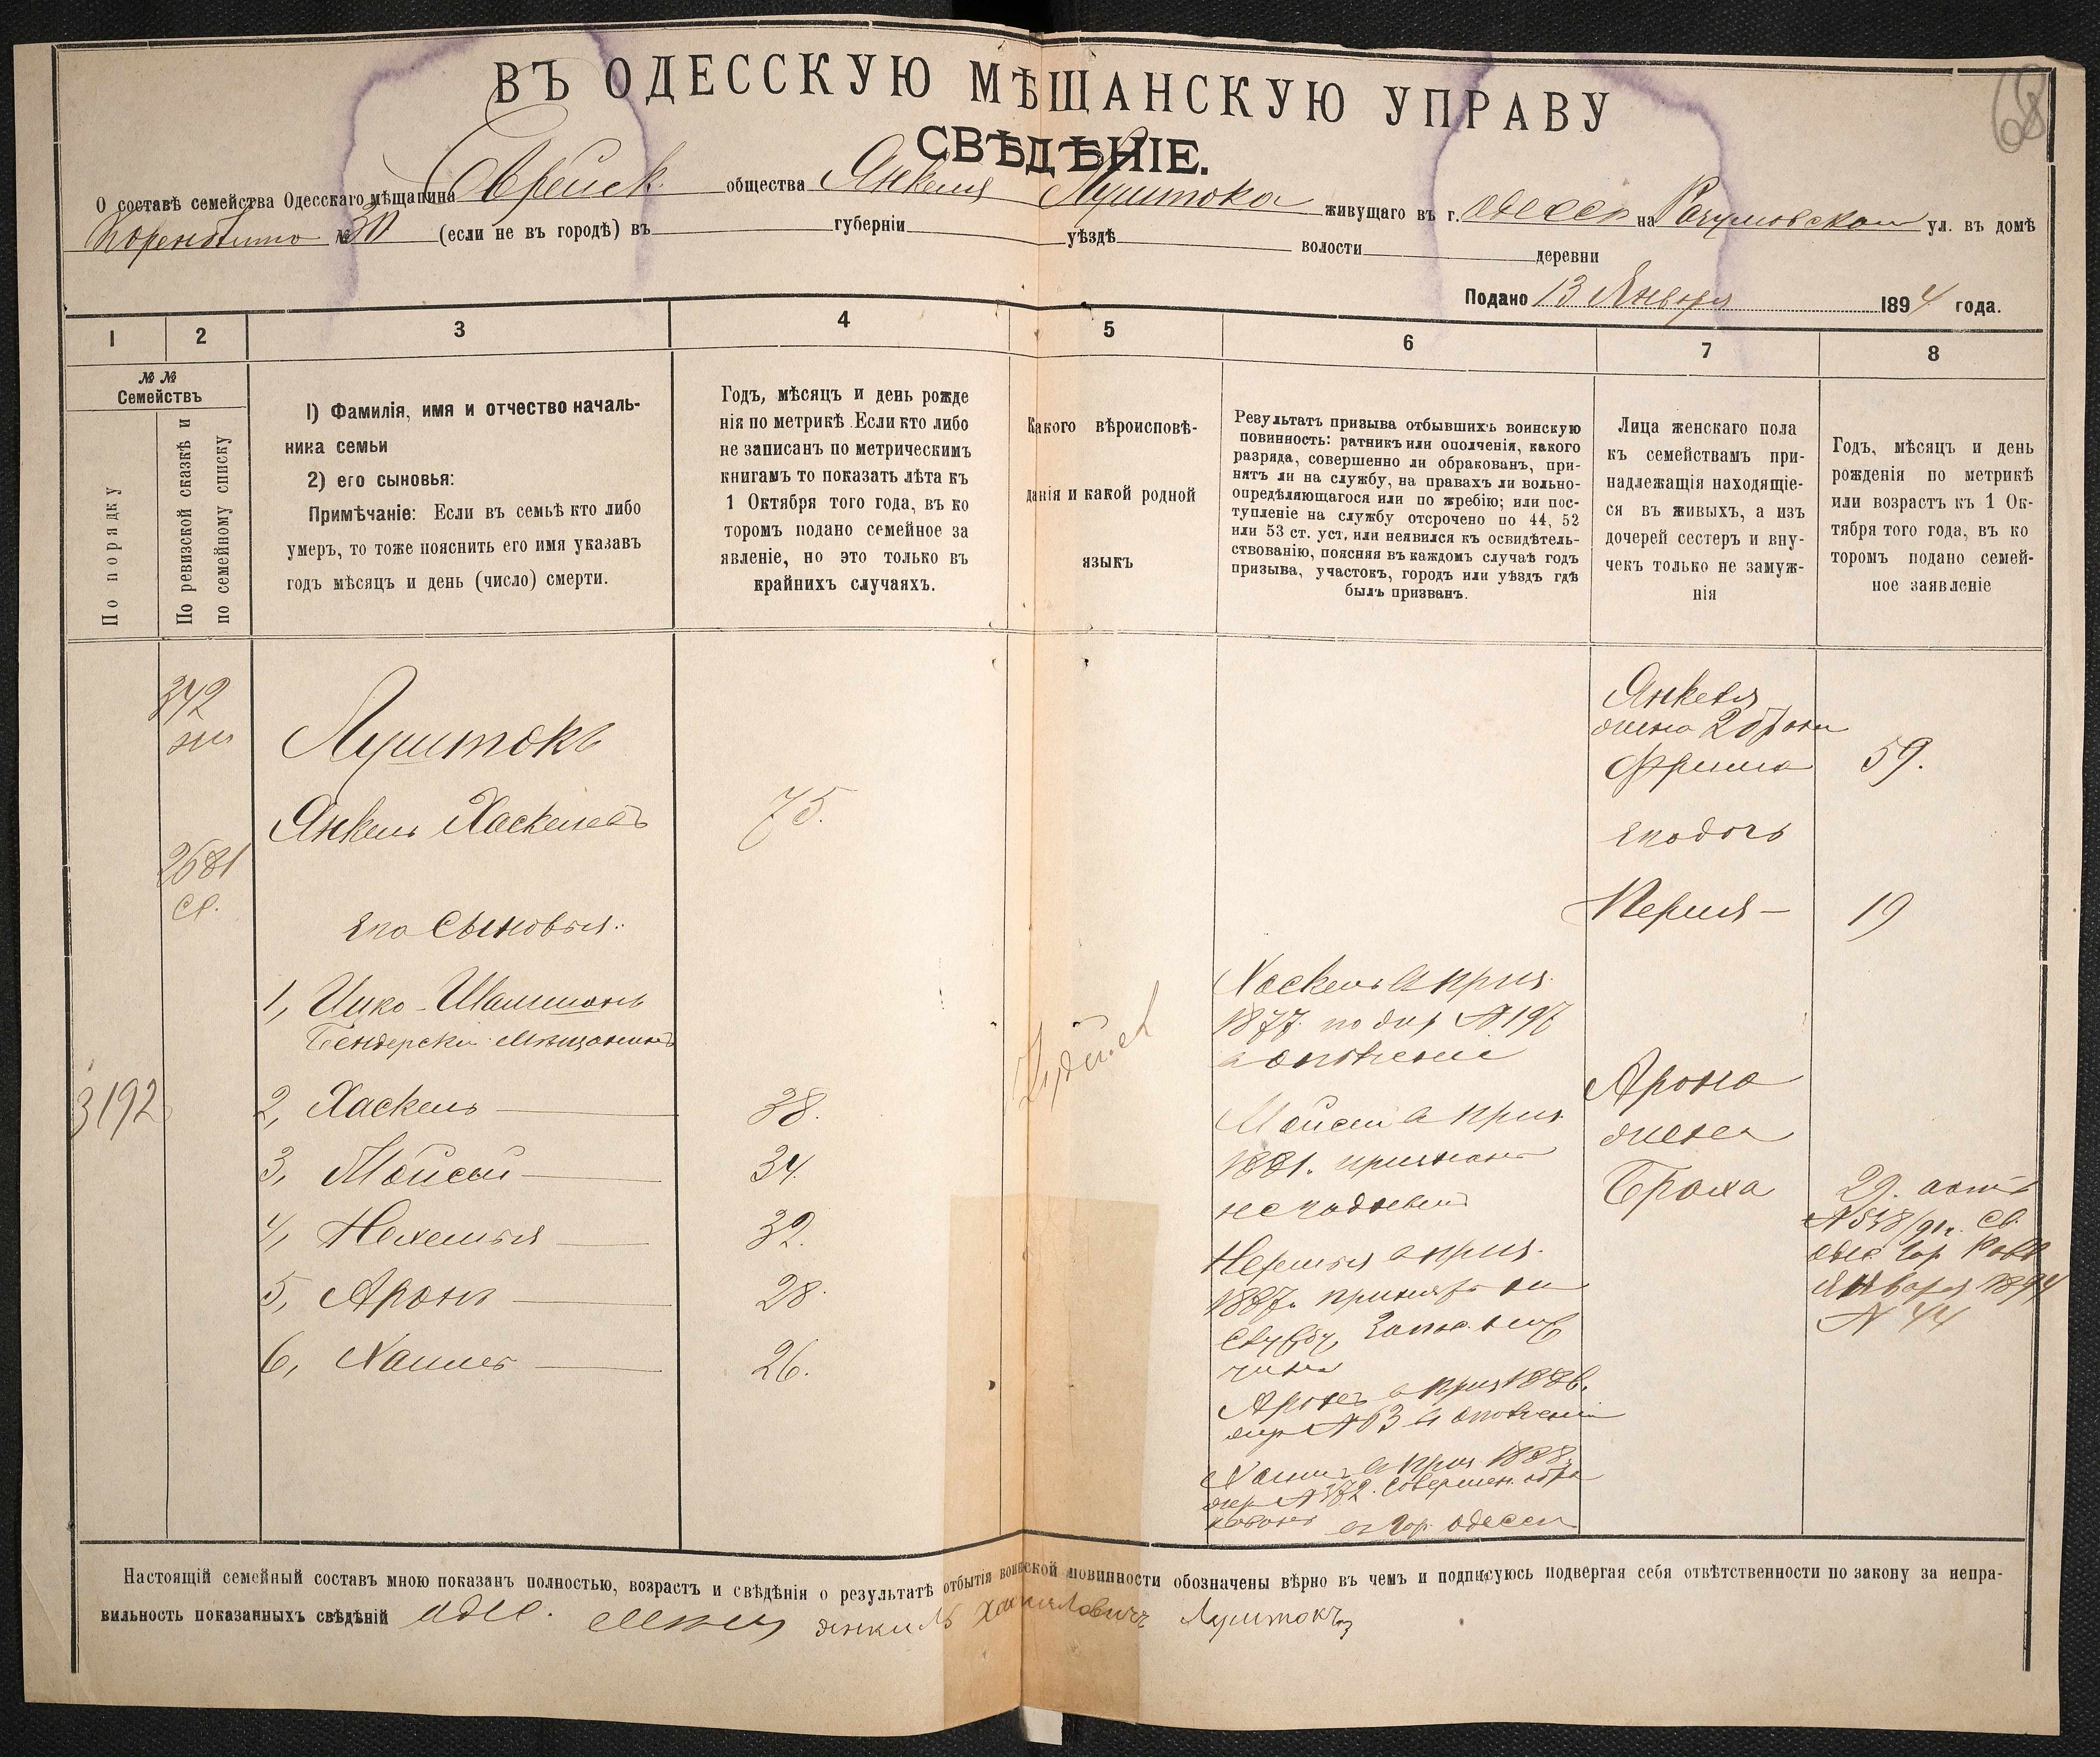 68
ВЪ ОДЕССКУЮ МѢЩАНСКУЮ УПРАВУ
СВѢДѢНІЕ.
О составѣ семейства Одесскаго мѣщанина Еврейск. общества Янкеля Луштока живущаго въ г. Одессѣ на ул. въ домѣ
№ 30 (если не въ городѣ) въ губерніи уѣздѣ волости деревни
Подано 13 Января 1894 года.
1 2 3 4 5 6 7 8
№ №
Семействъ
По порядку
По ревизской сказкѣ и
по семейному списку
1) Фамилія, имя и отчество началь-
ника семьи
2) его сыновья:
Примѣчаніе: Если въ семьѣ кто либо
умеръ, то тоже пояснить его имя указавъ
годъ мѣсяцъ и день (число) смерти.
Годъ, мѣсяцъ и день рожде
нія по метрикѣ. Если кто либо
не записанъ по метрическимъ
книгамъ то показать лѣта къ
1 Октября того года, въ ко
торомъ подано семейное за
явленіе, но это только въ
крайнихъ случаяхъ.
Какого вѣроисповѣ-
данія и какой родной
языкъ
Результатъ призыва отбывшихъ воинскую
повинность: ратникъ или ополченія, какого
разряда, совершенно ли обракованъ, при-
нятъ ли на службу, на правахъ ли вольно-
опредѣляющагося или по жребію; или пос-
тупленіе на службу отсрочено по 44, 52
или 53 ст. уст. или неявился къ освидѣтель-
ствованію, поясняя въ каждомъ случаѣ годъ
призыва, участокъ, городъ или уѣздъ гдѣ
былъ призванъ.
Лица женскаго пола
къ семействамъ при-
надлежащія находящіе-
ся въ живыхъ, а изъ
дочерей сестеръ и вну-
чекъ только не замуж-
нія
Годъ, мѣсяцъ и день
рожденія по метрикѣ
или возрастъ къ 1 Ок-
тября того года, въ ко
торомъ подано семей-
ное заявленіе
342
2681
3192
Луштокъ
Янкель Хаскелевъ 75.
его сыновья.
1, Ицко-Шлиома
Бендерскій мѣщанинъ
2, Хаскель 38.
3, Мойсей 34.
4, Нехемья 32.
5, Аронъ 28.
6, Хаимъ 26.
Іудейск
Хаскель въ приз.
1877. по жер № 197
въ ополченіе
Мойсей въ приз.
1881. признанъ
негоднымъ
Нехемья въ приз.
1887. принятъ на
службу,
чина
Аронъ въ приз 1886.
жер № 63 въ ополченіе
Хаимъ въ приз. 1888.
жер № 372. Совершен. обра
кованъ въ гор. Одессѣ
Янкеля
жена 2 брака
Фрима 59.
его дочь
Перля 19
Арона
жена
Броха 29.
Января 1894
№ 44
Настоящій семейный составъ мною показанъ полностью, возрастъ и свѣдѣнія о результатѣ отбытія воинской повинности обозначены вѣрно въ чемъ и подписуюсь подвергая себя отвѣтственности по закону за непра-
вильность показанныхъ свѣдѣній Одес. Луштокъ